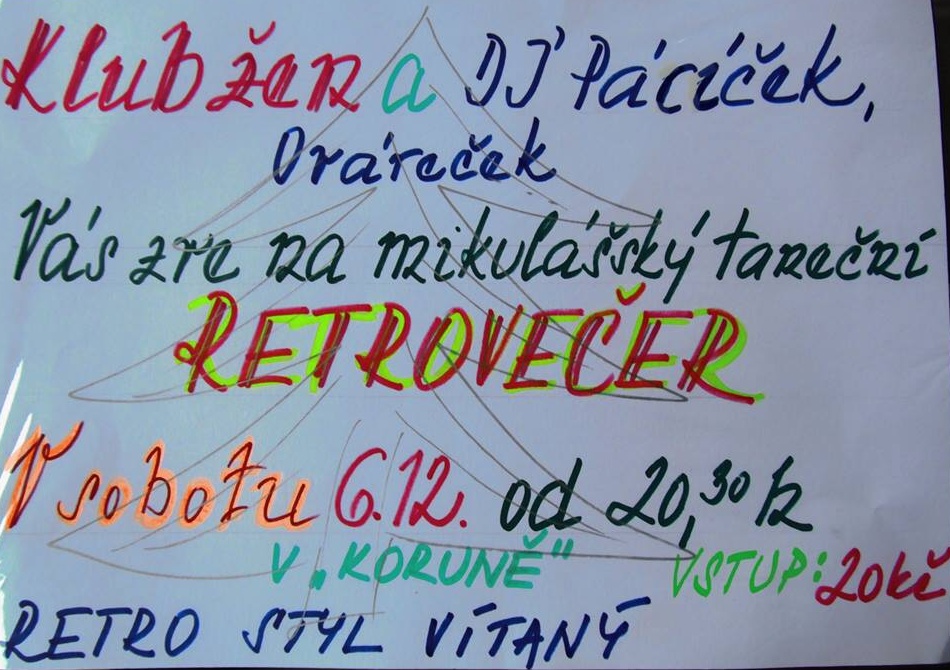 Klub žen a DJ Pácíček,
Oráreček
Vás zve na mikulášský taneční
RETROVEČER
V sobotu 6.12. od 20,30 h
V „KORUNĚ“ VSTUP: 20kč
RETRO STYL VÍTANÝ